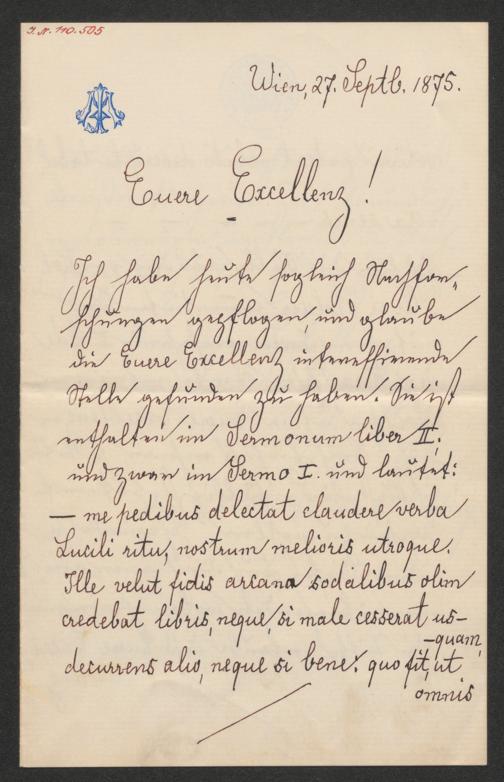 J.N. 110.505
Wien, 27. Septb. 1875.
Euere Excellenz!
Ich habe heute sogleich Nachfor-
schungen gepflogen, und glaube
die Euere Excellenz interessirende
Stelle gefunden zu haben. Sie ist
enthalten im Sermonum liber II,
und zwar im Sermo I. und lautet:
— me pedibus delectat claudere verba
Lucili ritu, nostrum melioris utroque.
Ille velut fidis arcana sodalibus olim
credebat libris, neque, si male cesserat us-
-quam,
decurrens alio, neque si bene: quo fit, ut
omnis